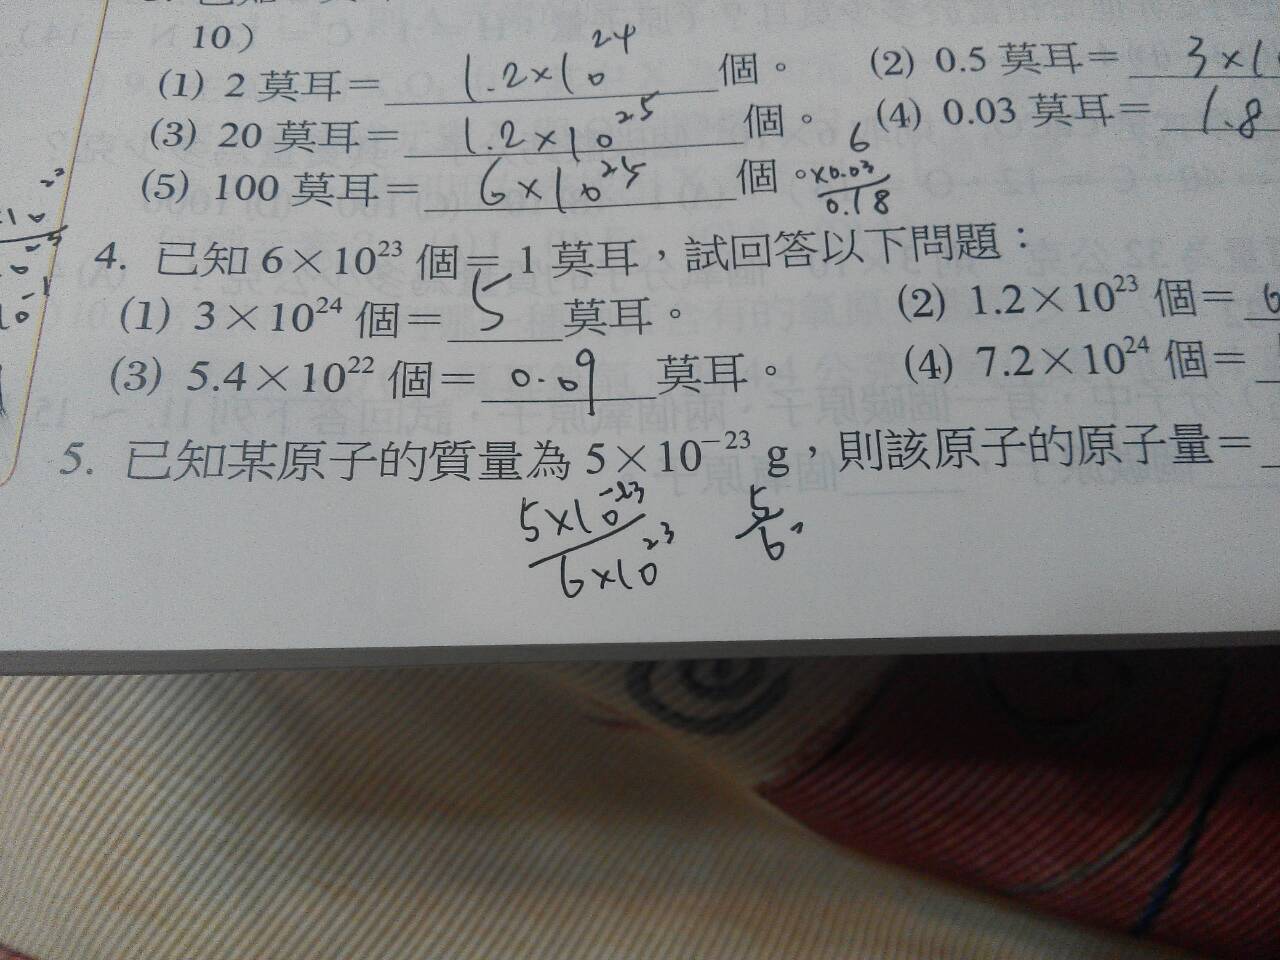 10)
(1) 2 莫耳= 1.2×10²⁴ 個。 (2) 0.5 莫耳= 3×1
(3) 20 莫耳= 1.2×10²⁵ 個。 (4) 0.03 莫耳= 1.8
(5) 100 莫耳= 6×10²⁵ 個。
6
×0.03
0.18
4. 已知 6×10²³ 個=1 莫耳,試回答以下問題:
(1) 3×10²⁴ 個= 5 莫耳。 (2) 1.2×10²³ 個=
(3) 5.4×10²² 個= 0.09 莫耳。 (4) 7.2×10²⁴ 個=
5. 已知某原子的質量為 5×10⁻²³ g,則該原子的原子量=
5×10⁻²³ 5
6×10²³ 6